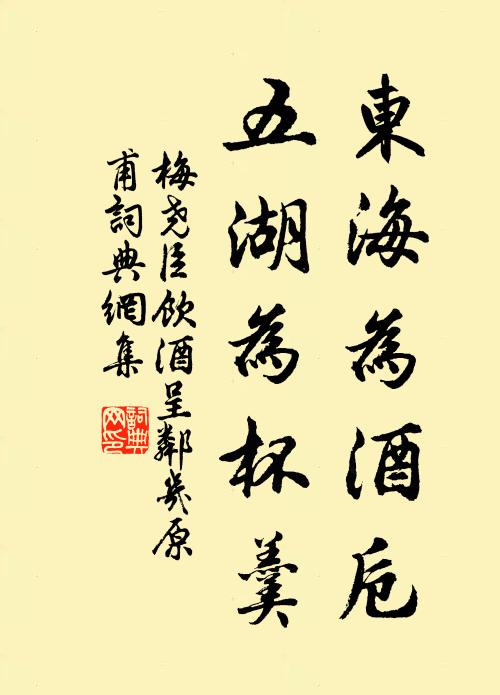 東海為酒卮
五湖為杯羹
梅堯臣飲酒呈鄰幾原
甫詞典網集
詞典網印